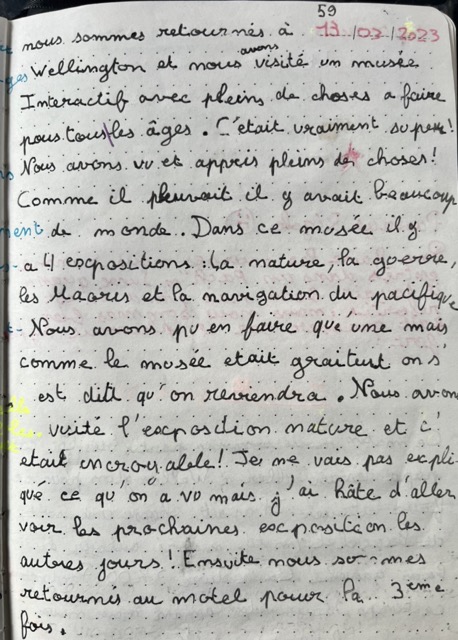 59
nous sommes retournés à 13/02/2023
Wellington et nous avons visité un musée
Interactif avec pleins de choses a faire
pour tous les âges. C'était vraiment super!
Nous avons vu et appris pleins de choses!
Comme il pleuvait il y avait beaucoup
de monde. Dans ce musée il y
a 4 expositions : La nature, la guerre,
les Maoris et la navigation du pacifique
Nous avons pu en faire que une mais
comme le musée etait graituit on s'
est dit qu'on reviendra. Nous avons
visité l'exposition nature et c'
était incroyable! Je ne vais pas expli-
qué ce qu'on a vu mais j'ai hâte d'aller
voir les prochaines exposition les
autres jours! Ensuite nous sommes
retournés au motel pour la 3ème
fois.